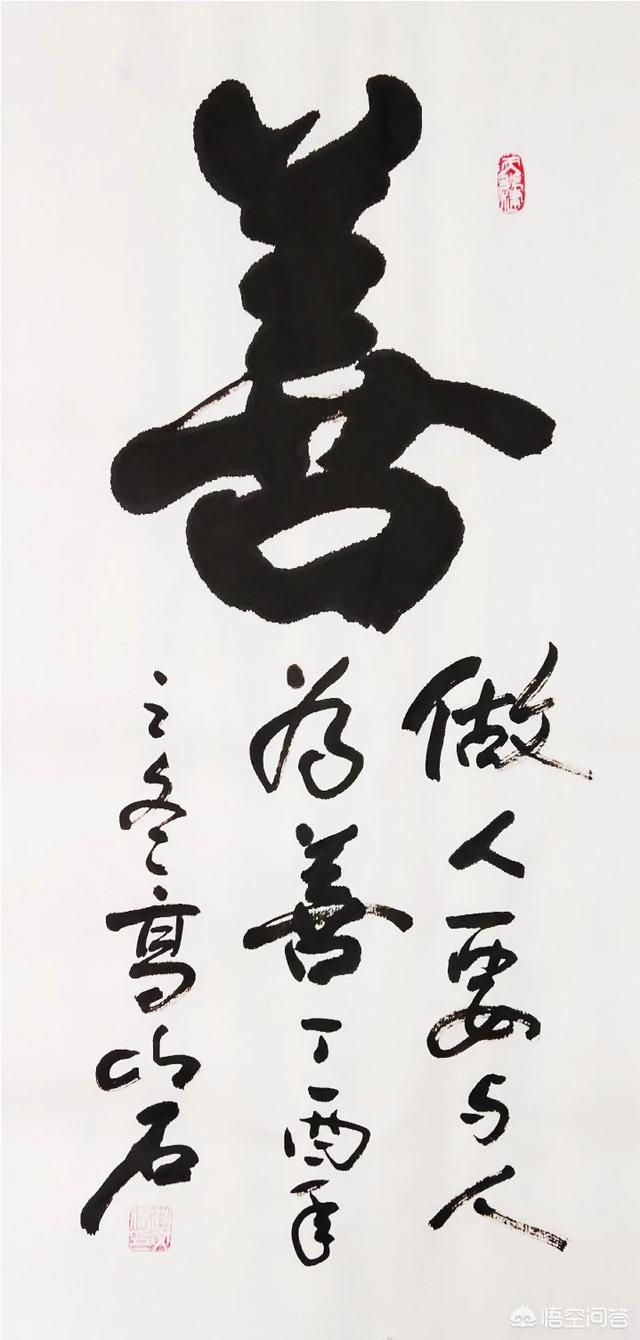 善
做人要与人
为善丁酉年
之冬高山石
悟空问答